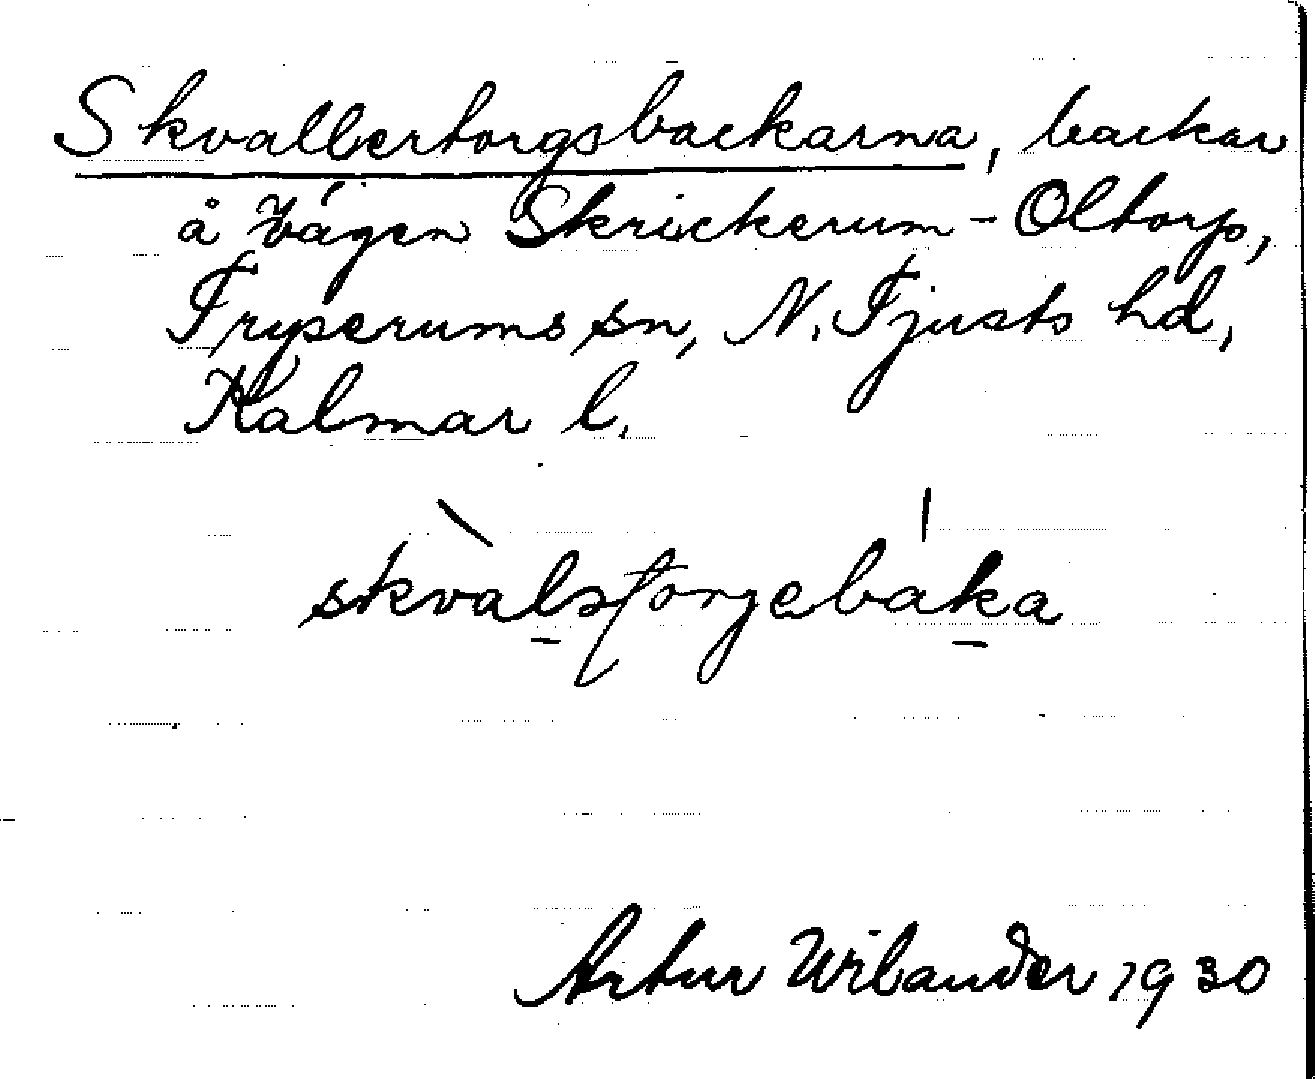 Skvallertorgsbackarna, backar
å vägen Skrickerum - Oltorp,
Tryserums sn, N. Tjusts hd,
Kalmar l.
skvàlstorjebáka
Artur Wilander 1930